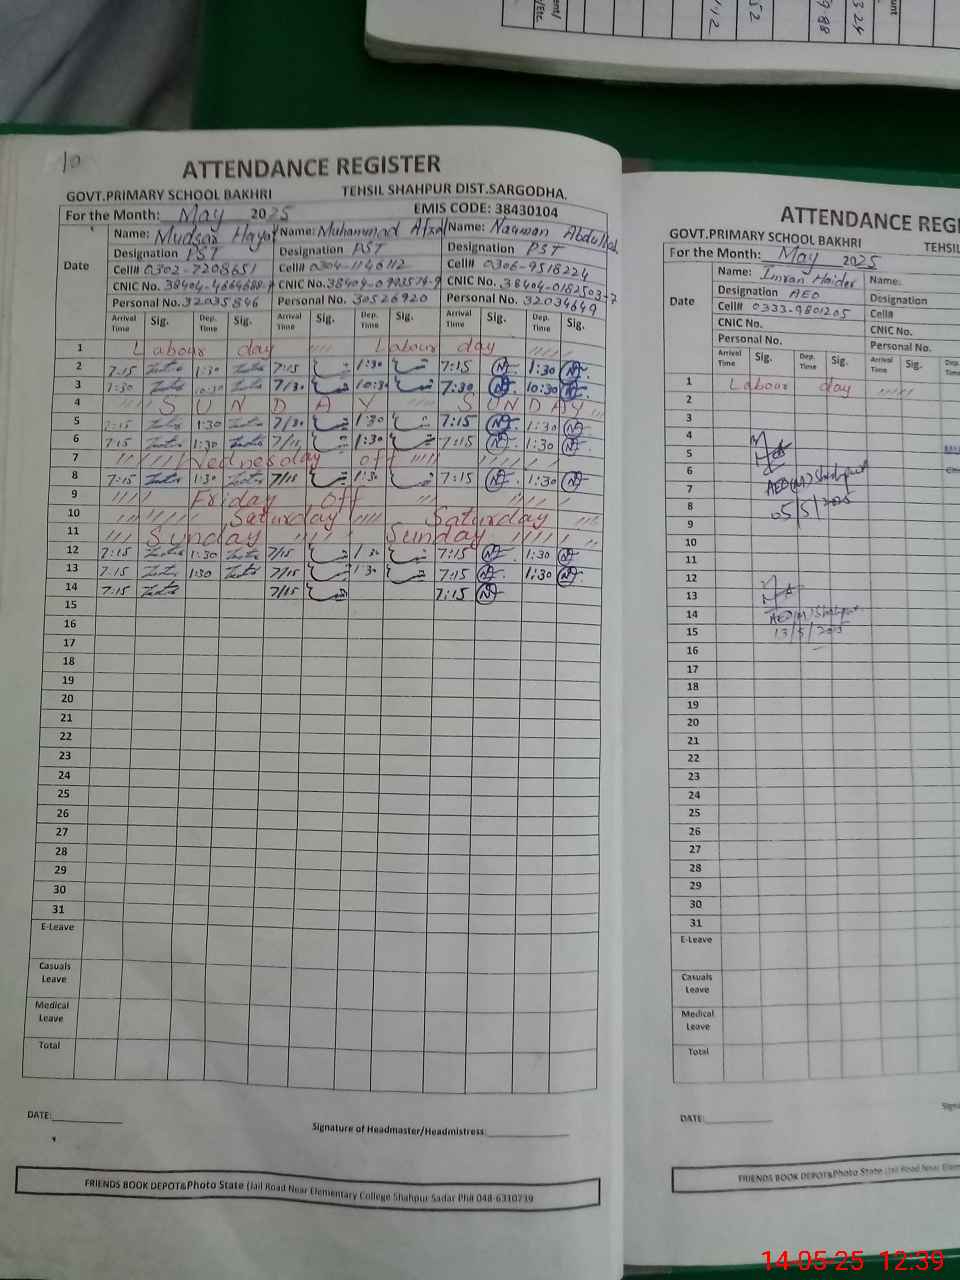 10
ATTENDANCE REGISTER
GOVT.PRIMARY SCHOOL BAKHRI TEHSIL SHAHPUR DIST.SARGODHA.
For the Month: May 2025 EMIS CODE: 38430104
Name: Mudsar Hayat Name: Muhammad Afzal Name: Nauman Abdullah
Designation PST Designation PST Designation PST
Date Cell# 0302-7208651 Cell# 0304-1146112 Cell# 0306-9518224
CNIC No. CNIC No. CNIC No. 38404-0182503-7
Personal No. 32035846 Personal No. 30526920 Personal No. 32034649
Arrival Time Sig. Dep. Time Sig. Arrival Time Sig. Dep. Time Sig. Arrival Time Sig. Dep. Time Sig.
1 Labour day Labour day
2 7:15 1:30 7:15 1:30 7:15 1:30
3 7:30 10:30 7:30 10:30 7:30 10:30
4 SUNDAY SUNDAY
5 7:15 1:30 7:30 1:30 7:15 1:30
6 7:15 1:30 7/15 1:30 7:15 1:30
7 Wednesday off
8 7:15 1:30 7/15 1:30 7:15 1:30
9 Friday off
10 Saturday Saturday
11 Sunday Sunday
12 7:15 1:30 7/15 1:30 7:15 1:30
13 7:15 1:30 7/15 1:30 7:15 1:30
14 7:15 7/15 7:15
15
16
17
18
19
20
21
22
23
24
25
26
27
28
29
30
31
E-Leave
Casuals Leave
Medical Leave
Total
DATE: Signature of Headmaster/Headmistress:
FRIENDS BOOK DEPOT&Photo State (Jail Road Near Elementary College Shahpur Sadar Ph# 048-6310739
ATTENDANCE REG
GOVT.PRIMARY SCHOOL BAKHRI TEHSIL
For the Month: May 2025
Name: Imran Haider Name:
Designation AEO Designation
Date Cell# 0333-9801205 Cell#
CNIC No. CNIC No.
Personal No. Personal No.
Arrival Time Sig. Dep. Time Sig. Arrival Time Sig. Dep. Time
1 Labour day
2
3
4
5
6
7 AEO(M) Shahpur
8 05/5/2025
9
10
11
12
13
14 AEO(M) Shahpur
15 13/5/2025
16
17
18
19
20
21
22
23
24
25
26
27
28
29
30
31
E-Leave
Casuals Leave
Medical Leave
Total
DATE: Signa
FRIENDS BOOK DEPOT&Photo State (Jail Road Near Elem
14-05-25 12:39